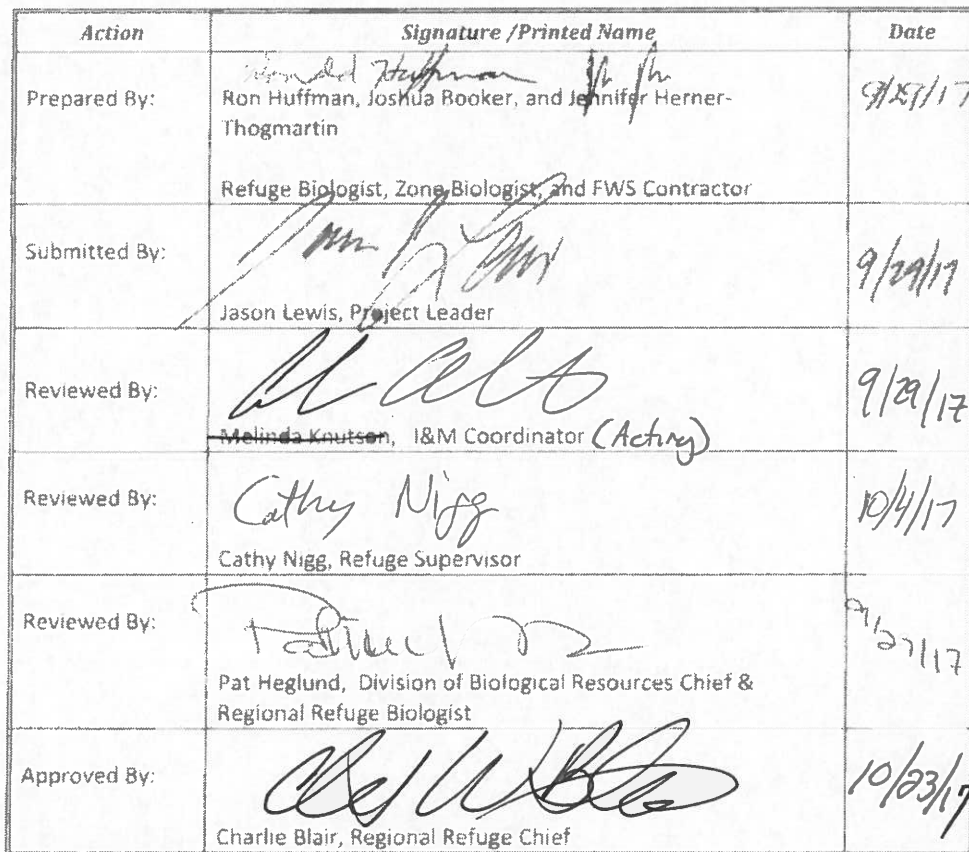 Action Signature / Printed Name Date
Prepared By: Ronald Huffman
Ron Huffman, Joshua Booker, and Jennifer Herner-
Thogmartin
Refuge Biologist, Zone Biologist, and FWS Contractor
Submitted By: 9/29/17
Jason Lewis, Project Leader
Reviewed By: 9/29/17
Melinda Knutson, I&M Coordinator (Acting)
Reviewed By: Cathy Nigg 10/4/17
Cathy Nigg, Refuge Supervisor
Reviewed By:
Pat Heglund, Division of Biological Resources Chief &
Regional Refuge Biologist
Approved By: 10/23/17
Charlie Blair, Regional Refuge Chief